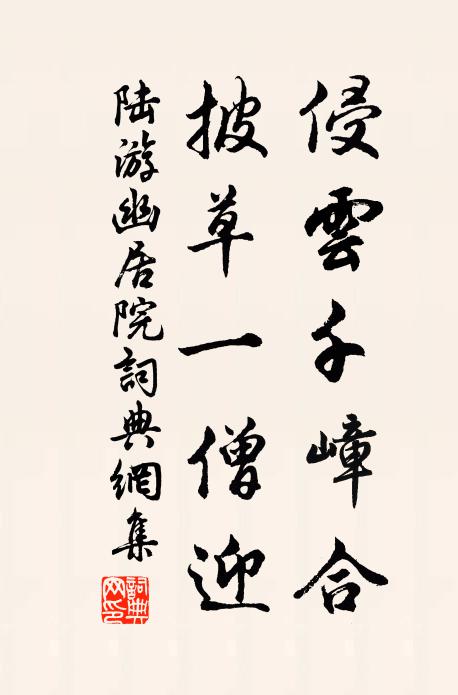 侵雲千嶂合
披草一僧迎
陸游幽居院詞典網集
詞典
网印